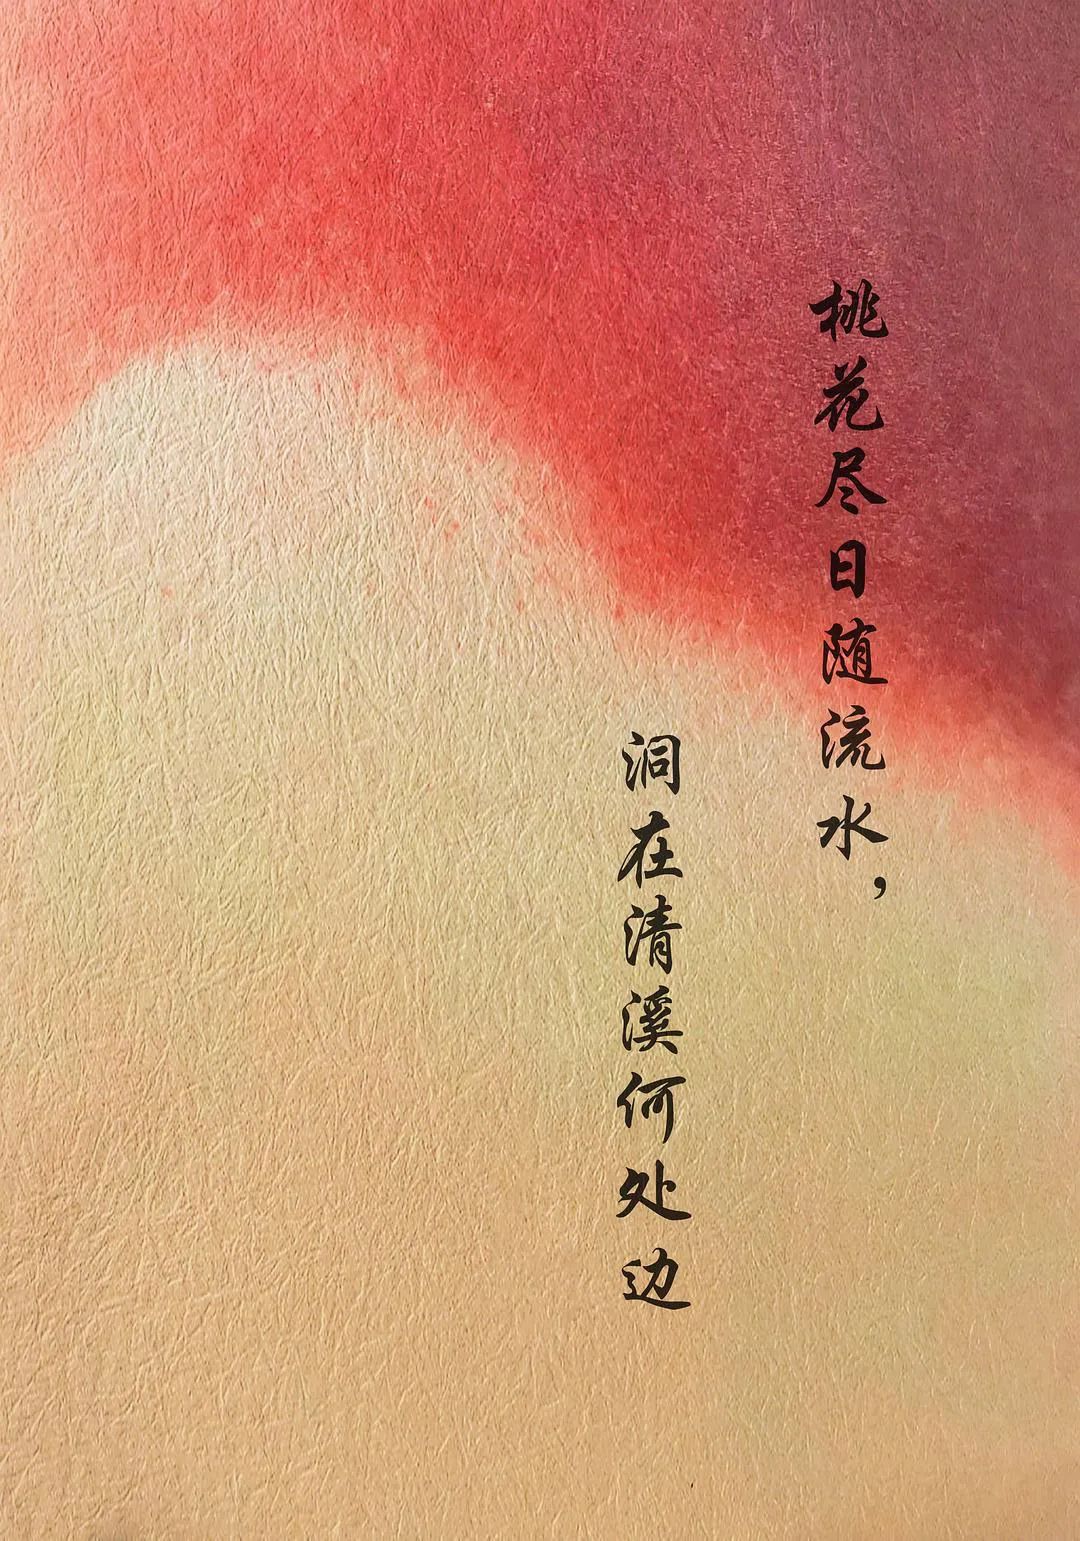 桃花尽日随流水，
洞在清溪何处边